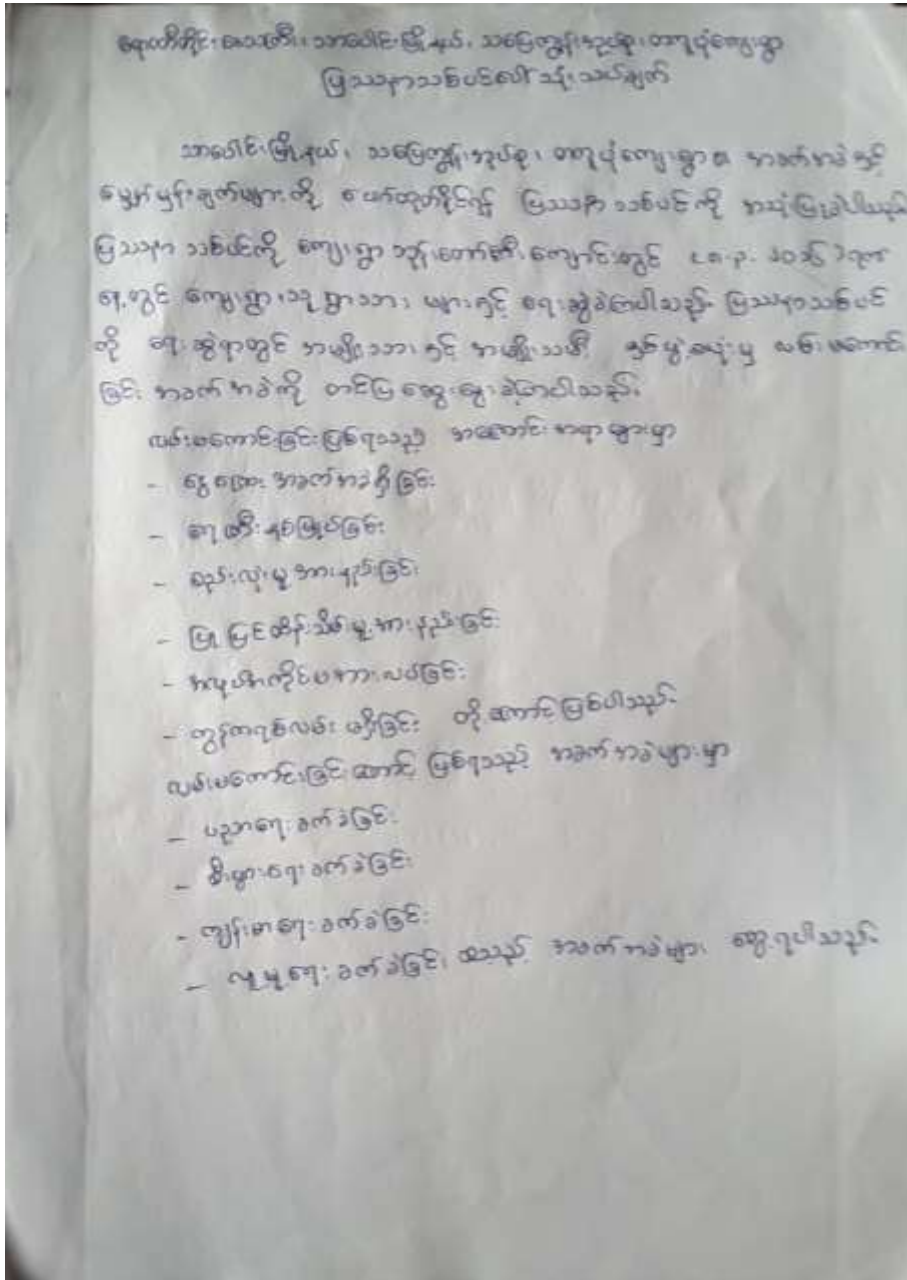 ဧရာဝတီတိုင်းဒေသကြီး၊ သာပေါင်းမြို့နယ်၊ သမြေကျွန်းအုပ်စု၊ ကျေးရွာ
ပြဿနာသစ်ပင်ပေါ် သုံးသပ်ချက်
သာပေါင်းမြို့နယ်၊ သမြေကျွန်းအုပ်စု၊ ကျေးရွာ ၏ အခက်အခဲ နှင့်
မျှော်မှန်းချက်များ ကို ဖော်ထုတ်နိုင်ရန် ပြဿနာ သစ်ပင် ကို အသုံးပြုခဲ့ပါသည်။
ပြဿနာ သစ်ပင်ကို ကျေးရွာ ဘုန်းတော်ကြီး ကျောင်းတွင်
နေ့တွင် ကျေးရွာသူ ရွာသား များနှင့် ရေးဆွဲခဲ့ကြပါသည်။ ပြဿနာသစ်ပင်
ကို ရေးဆွဲရာတွင် အမျိုးသား နှင့် အမျိုးသမီး နှစ်ဖွဲ့စလုံးမှ လမ်းမကောင်း
ခြင်း အခက်အခဲကို တင်ပြ ဆွေးနွေးခဲ့ကြပါသည်။
လမ်းမကောင်းခြင်းဖြစ်ရသည့် အကြောင်းအရာများမှာ
- ငွေကြေး အခက်အခဲရှိခြင်း
- ရေကြီး နစ်မြုပ်ခြင်း
- စည်းလုံးမှု အားနည်းခြင်း
- ပြုပြင်ထိန်းသိမ်းမှု အားနည်းခြင်း
- ခြင်း
- ကွန်ကရစ်လမ်း မရှိခြင်း တို့ကြောင့် ဖြစ်ပါသည်။
လမ်းမကောင်းခြင်းကြောင့် ဖြစ်ရသည့် အခက်အခဲများမှာ
- ပညာရေး ခက်ခဲခြင်း
- စီးပွားရေး ခက်ခဲခြင်း
- ကျန်းမာရေး ခက်ခဲခြင်း
- လူမှုရေး ခက်ခဲခြင်း စသည့် အခက်အခဲများ တွေ့ရပါသည်။